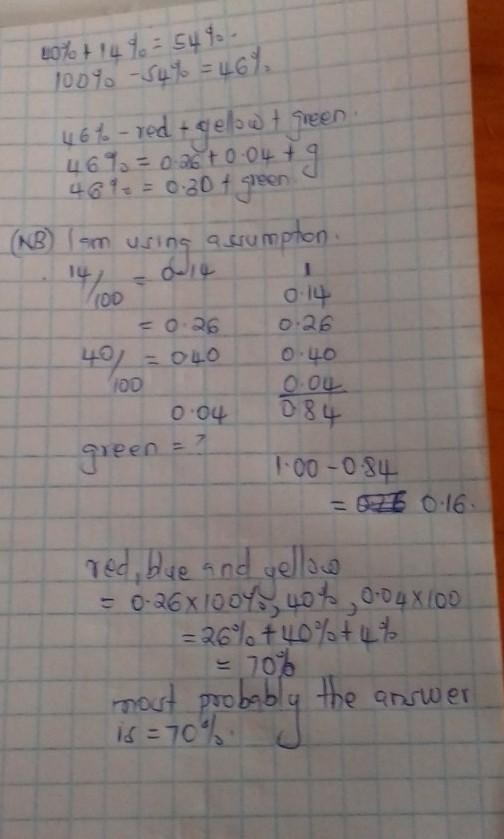 40% + 14% = 54%.
100% - 54% = 46%
46% - red + yellow + green.
46% = 0.26 + 0.04 + g
46% = 0.30 + green.
(NB) I am using assumpton.
14/100 = 0.14
= 0.26
40/100 = 040
0.04
green = ?
1
0.14
0.26
0.40
0.04
0.84
1.00 - 0.84
= 0.16.
red, blue and yellow
= 0.26 x 100%, 40%, 0.04 x 100
= 26% + 40% + 4%
= 70%
most probably the answer
is = 70%.